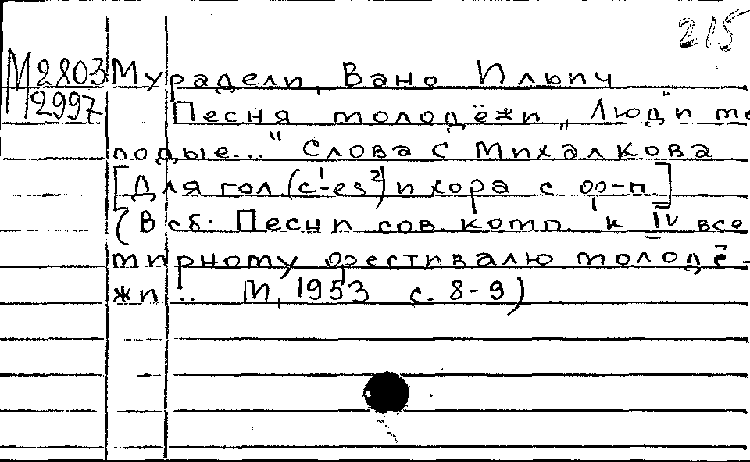 215
М2803 Мурадели, Вано Ильич
М2997 Песня молодёжи „Люди мо
лодые..." Слова С Михалкова
[Для гол. (c¹-es²) и хора с ф-п]
(В сб: Песни сов. комп. к IV все
мирному фестивалю молодё-
жи .. М, 1953 с. 8-9)